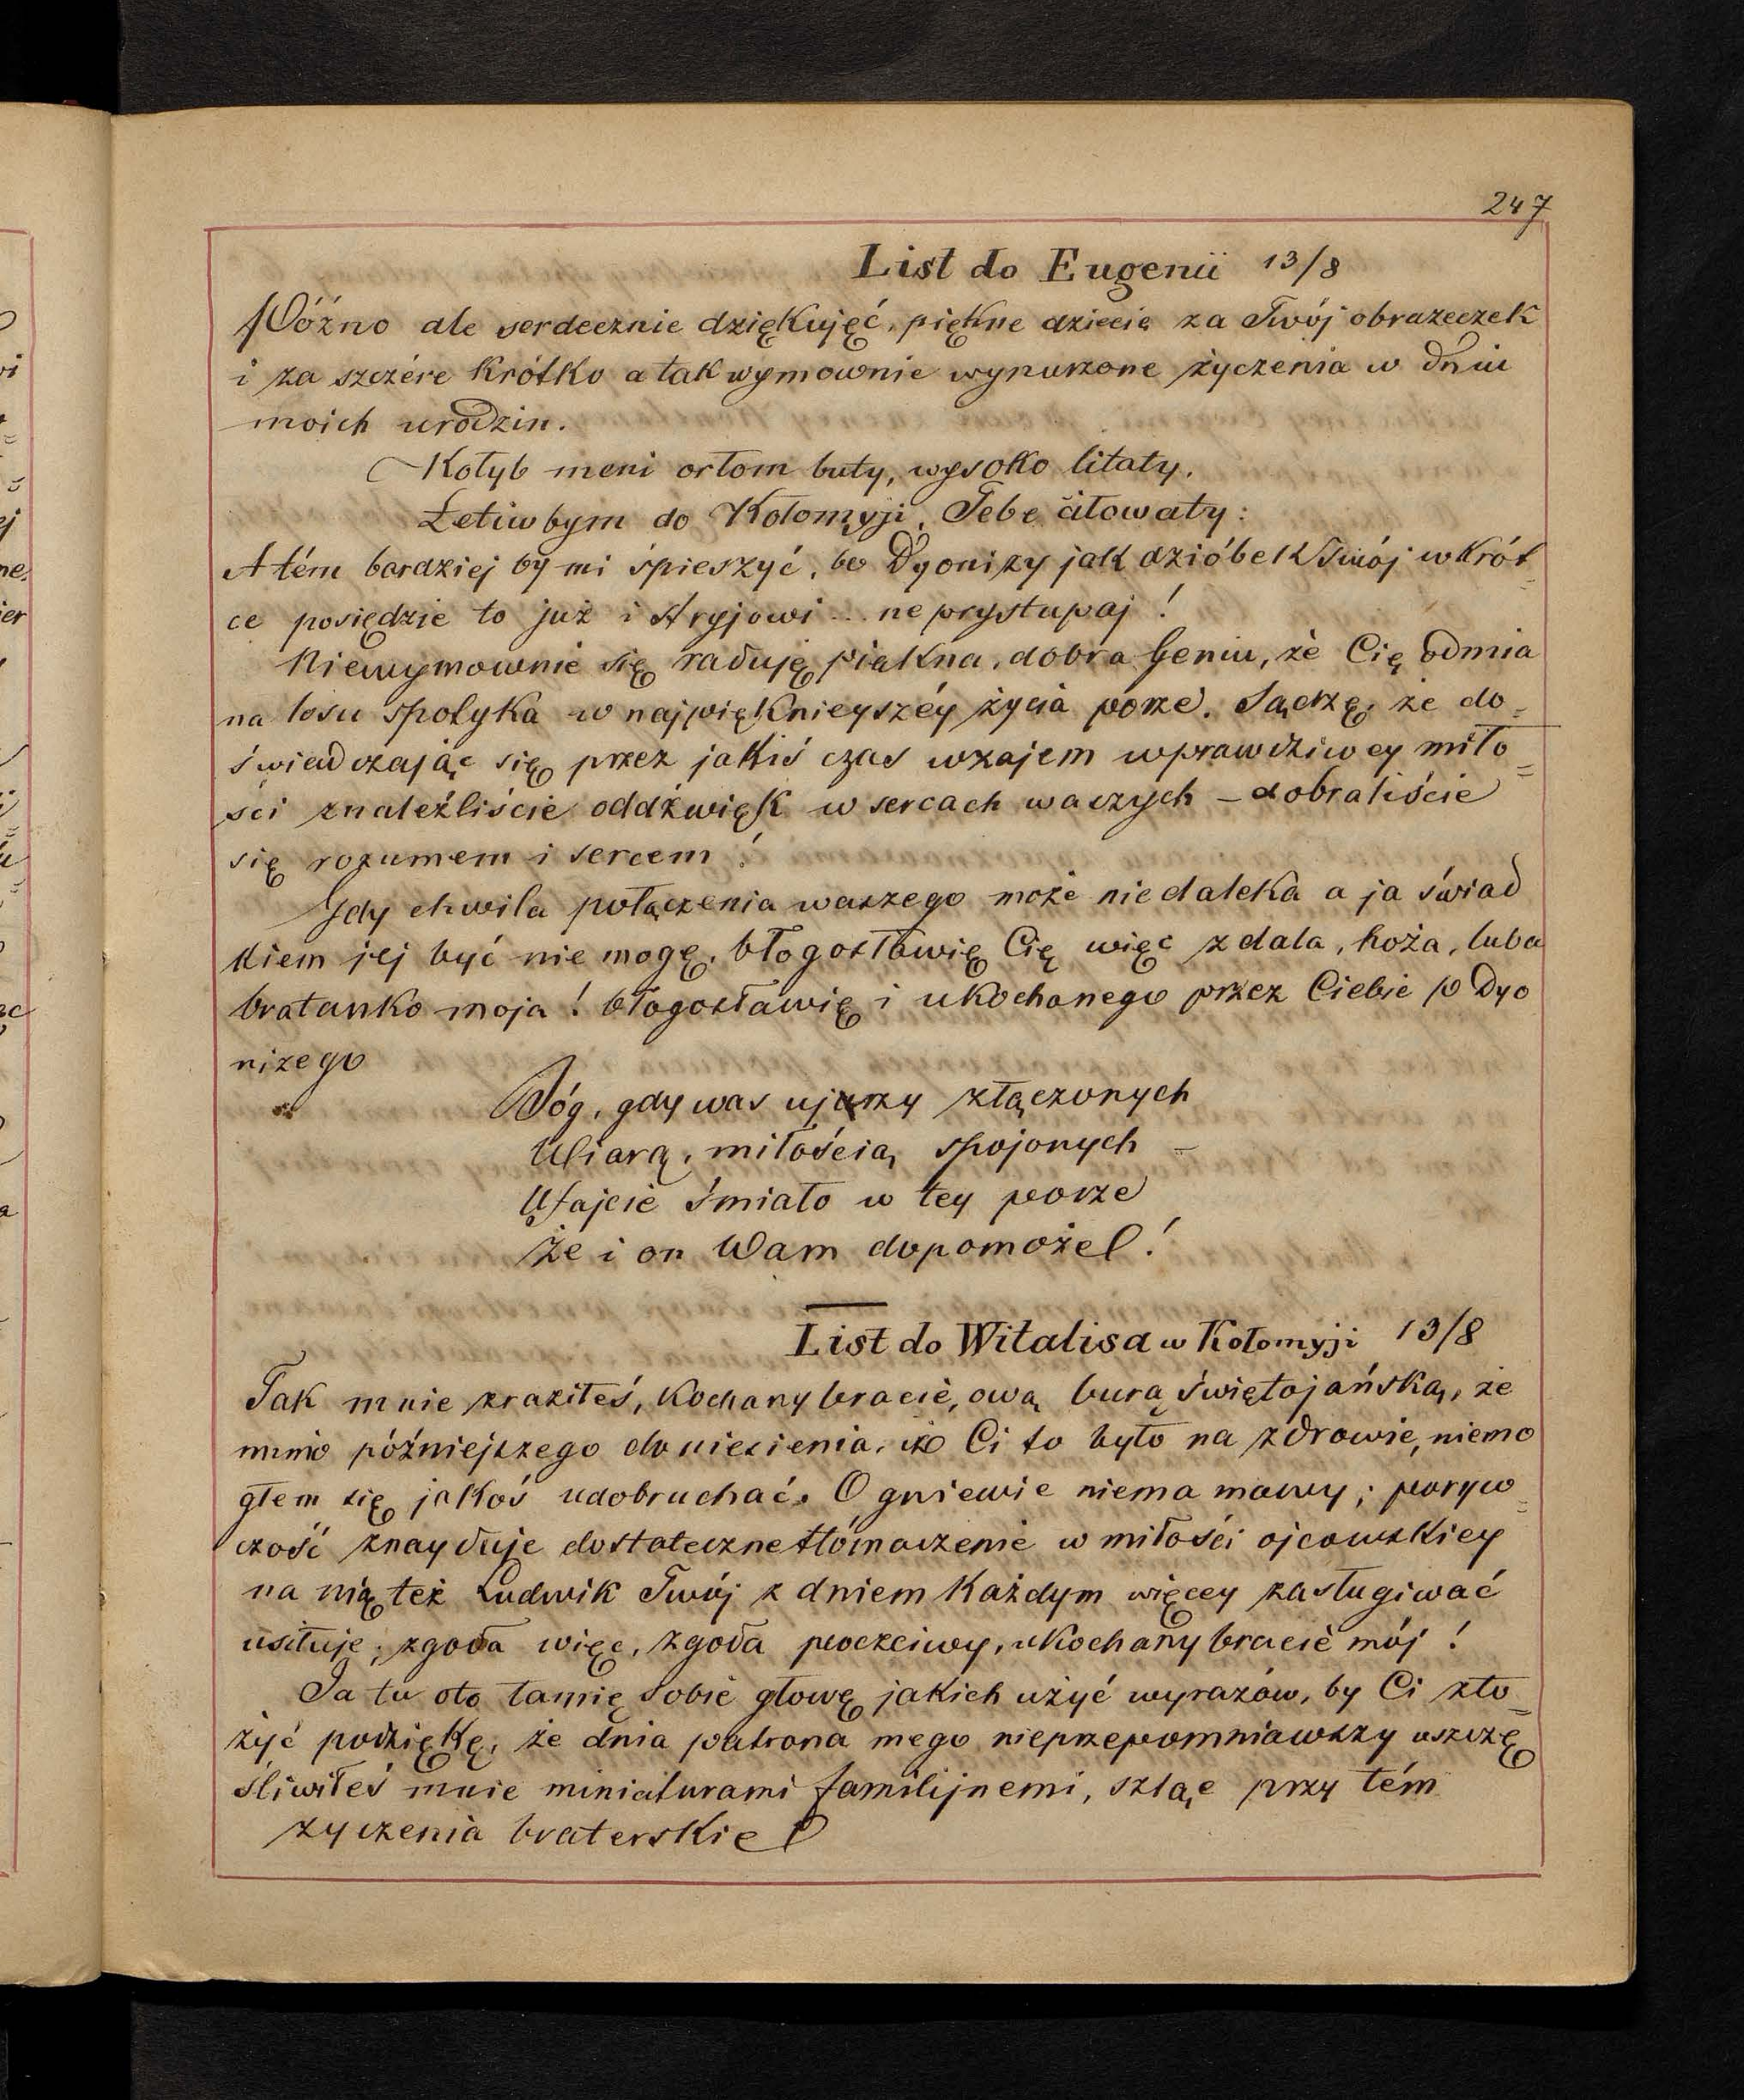 247
List do Eugenii 13/8
Póżno ale serdecznie dziękujęć, piękne dziecię za Twój obrazeczek
i za szczére krótko a tak wymownie wynurzone życzenia w dniu
moich urodzin.
Kołyb meni orłom buty, wysoko litaty.
Łetiwbym do Kołomyji, Tebe ciłowaty:
A tém bardziej by mi śpieszyć, bo Dyonizy jak dzióbek Twój wkrót
ce posiędzie to już i stryjowi ... ne prystupaj!
Niewymownie się raduję piękna, dobra Geniu, że Cię odmia
na losu spotyka w najpiękniejszéy życia porze. Sądzę, że do=
świadczając się przez jakiś czas wzajem wprawdziwey miło=
ści znaleźliście oddźwięk w sercach waszych – dobraliście
się rozumem i sercem!
Gdy chwila połączenia waszego może niedaleka a ja świad
kiem jej być nie mogę, błogosławię Cię więc zdala, hoża, luba
bratanko moja! błogosławię i ukochanego przez Ciebie p Dyo
nizego
Bóg, gdy was ujarzy złączonych
Wiarą, miłością spojonych –
Ufajcie śmiało w tey porze
Że i on Wam dopomoże!
List do Witalisa w Kołomyji 13/8
Tak mnie zraziłeś, kochany bracie, ową burą świętojańską, że
mimo późniejszego doniesienia, iż Ci to było na zdrowie, niemo
głem się jakoś udobruchać. O gniewie niema mowy; poryw=
czość znayduje dostateczne tłómaczenie w miłości ojcowskiey
na nią też Ludwik Twój z dniem każdym więcey zasługiwać
usiłuje; zgoda więc, zgoda poczciwy, ukochany bracie mój!
Ja tu oto łamię sobie głowę jakich użyć wyrazów, by Ci zło=
żyć podziękę, że dnia patrona mego nieprzepomniawszy uszczę
śliwiłeś mnie miniaturami familijnemi, szląc przy tém
życzenia braterskie